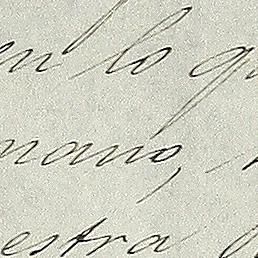 en lo qu
mano,
estra